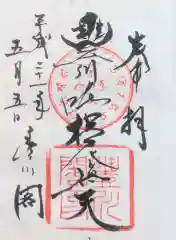 奉拝
豊川吒枳尼眞天
平成三十一年
五月五日
豊川閣